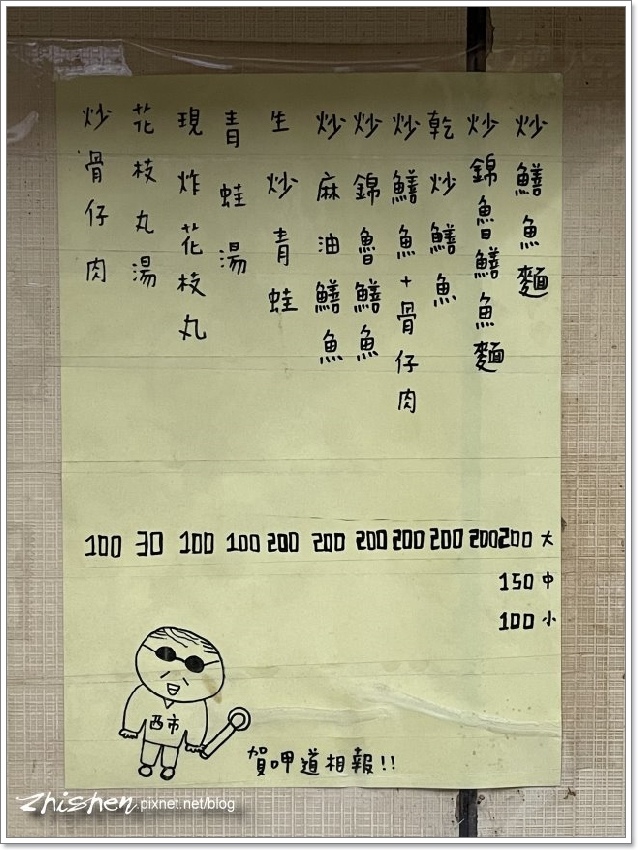 炒鱔魚麵 200大
150中
100小
炒錦魯鱔魚麵 200
乾炒鱔魚 200
炒鱔魚+骨仔肉 200
炒錦魯鱔魚 200
炒麻油鱔魚 200
生炒青蛙 200
青蛙湯 100
現炸花枝丸 100
花枝丸湯 30
炒骨仔肉 100
西市
賀呷道相報!!
zhishen.pixnet.net/blog